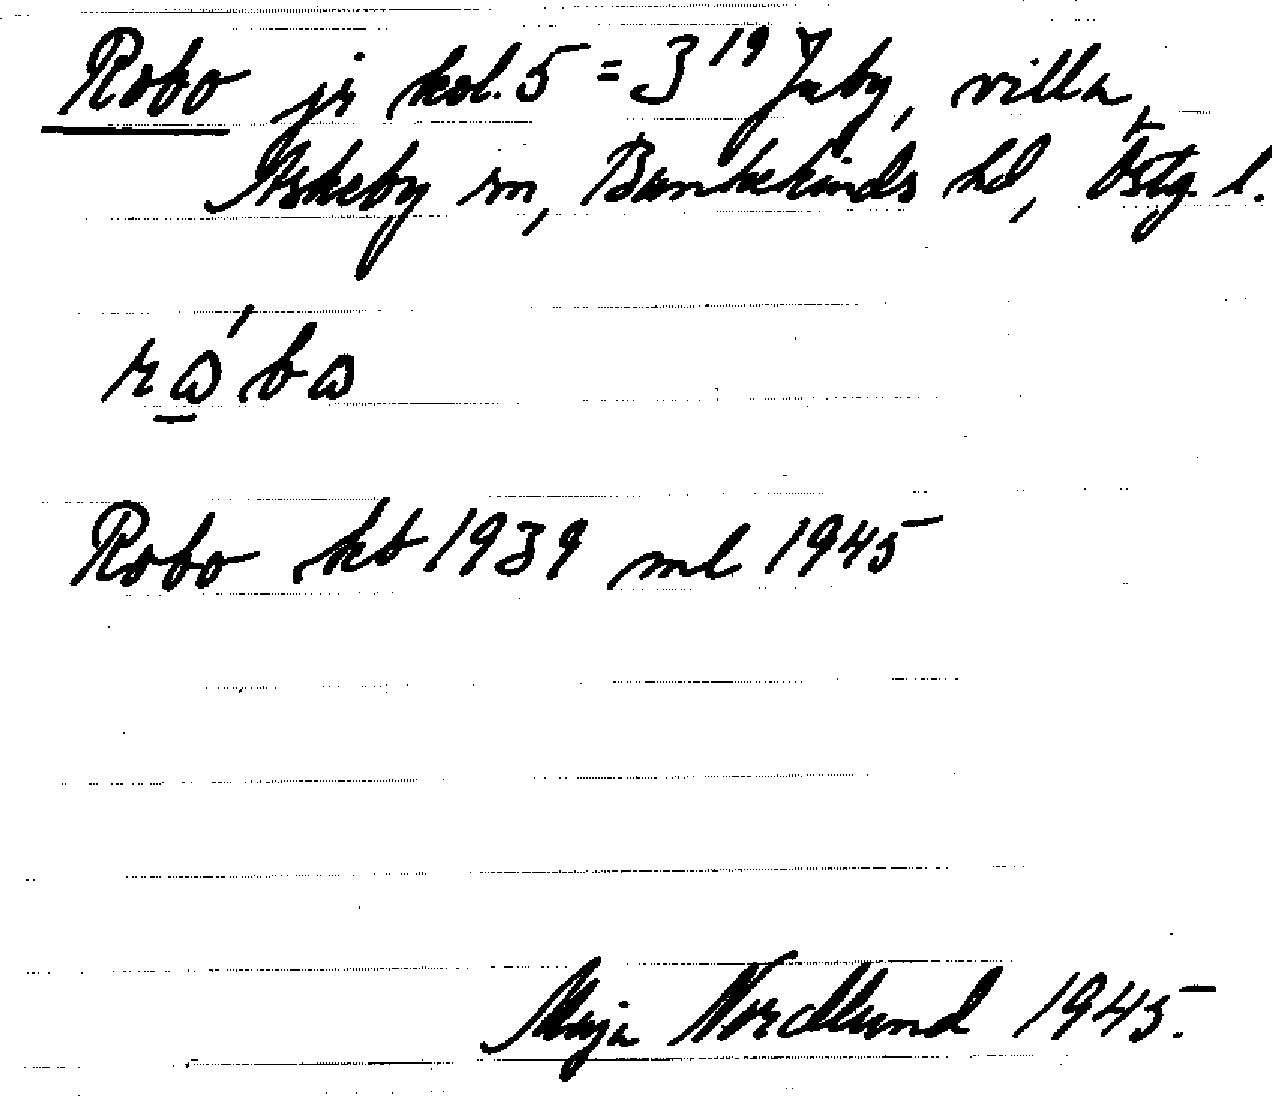 Robo js kol. 5 = 3¹⁹ Juby, villa,
Askeby sn, Bankekinds hd, Östg. l.
Robo kb 1939 ml 1945
Maja Nordlund 1945.